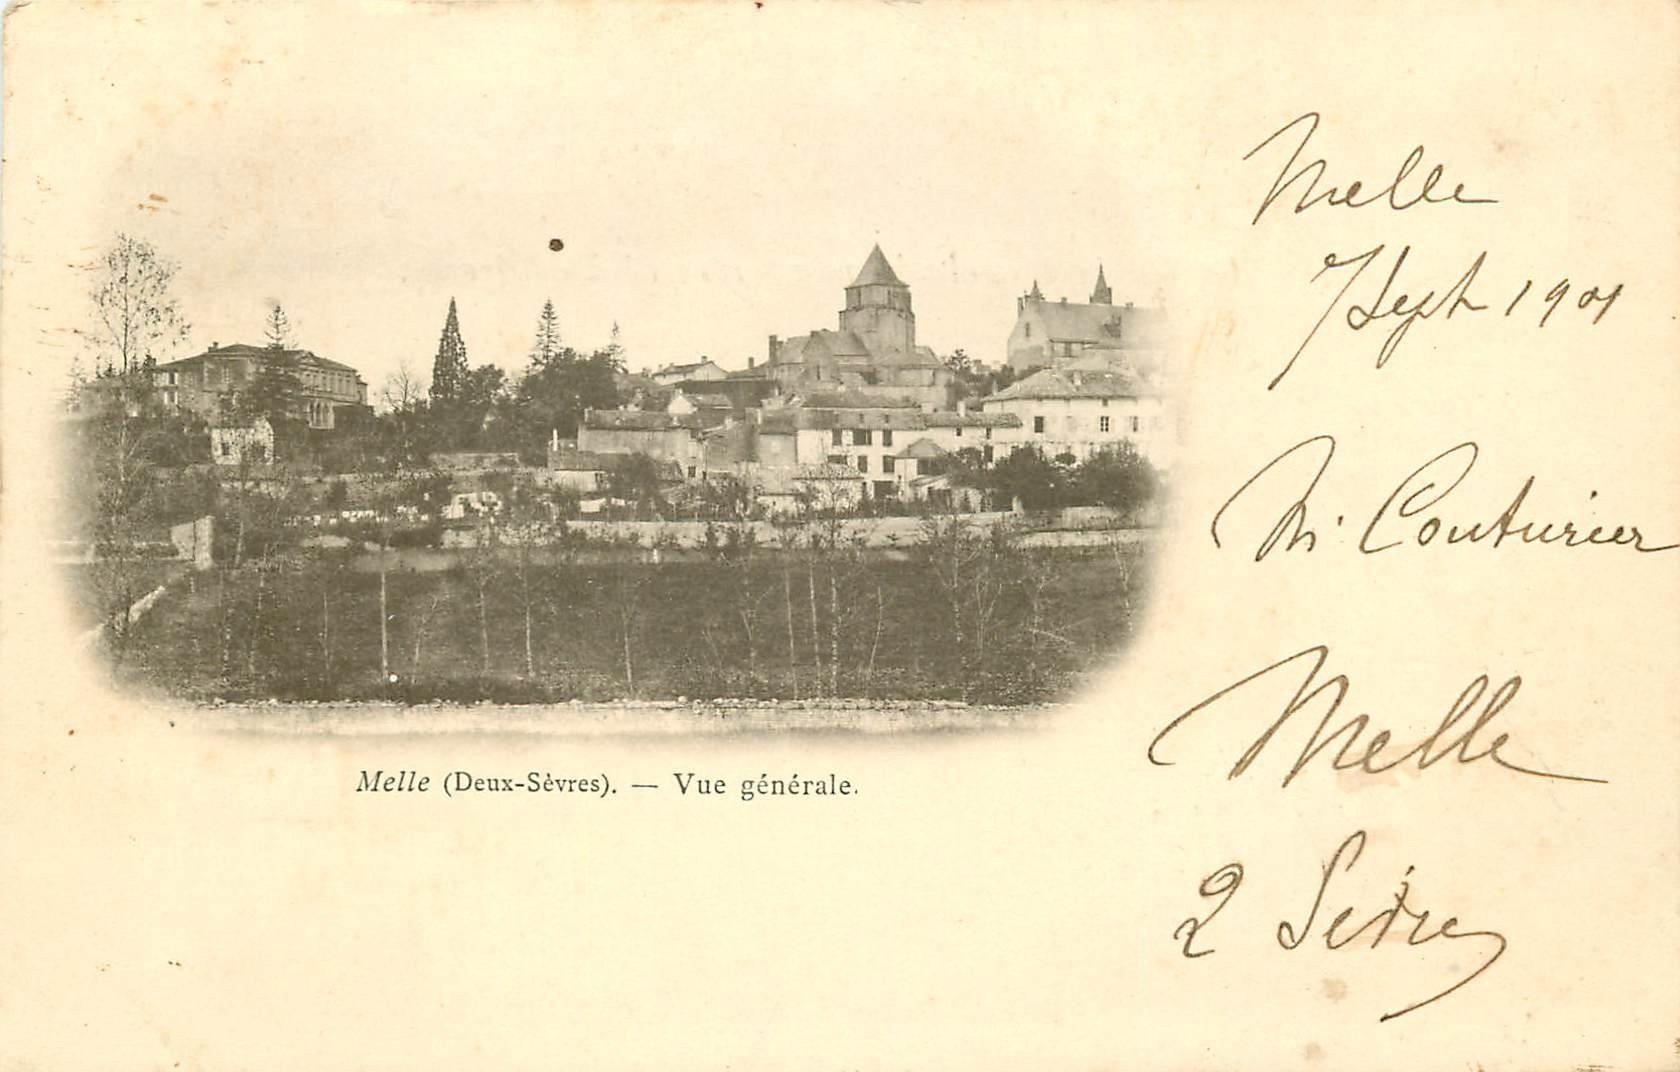 Melle
7 Sept 1901
M. Couturier
Melle
2 Sèvres
Melle (Deux-Sèvres). — Vue générale.